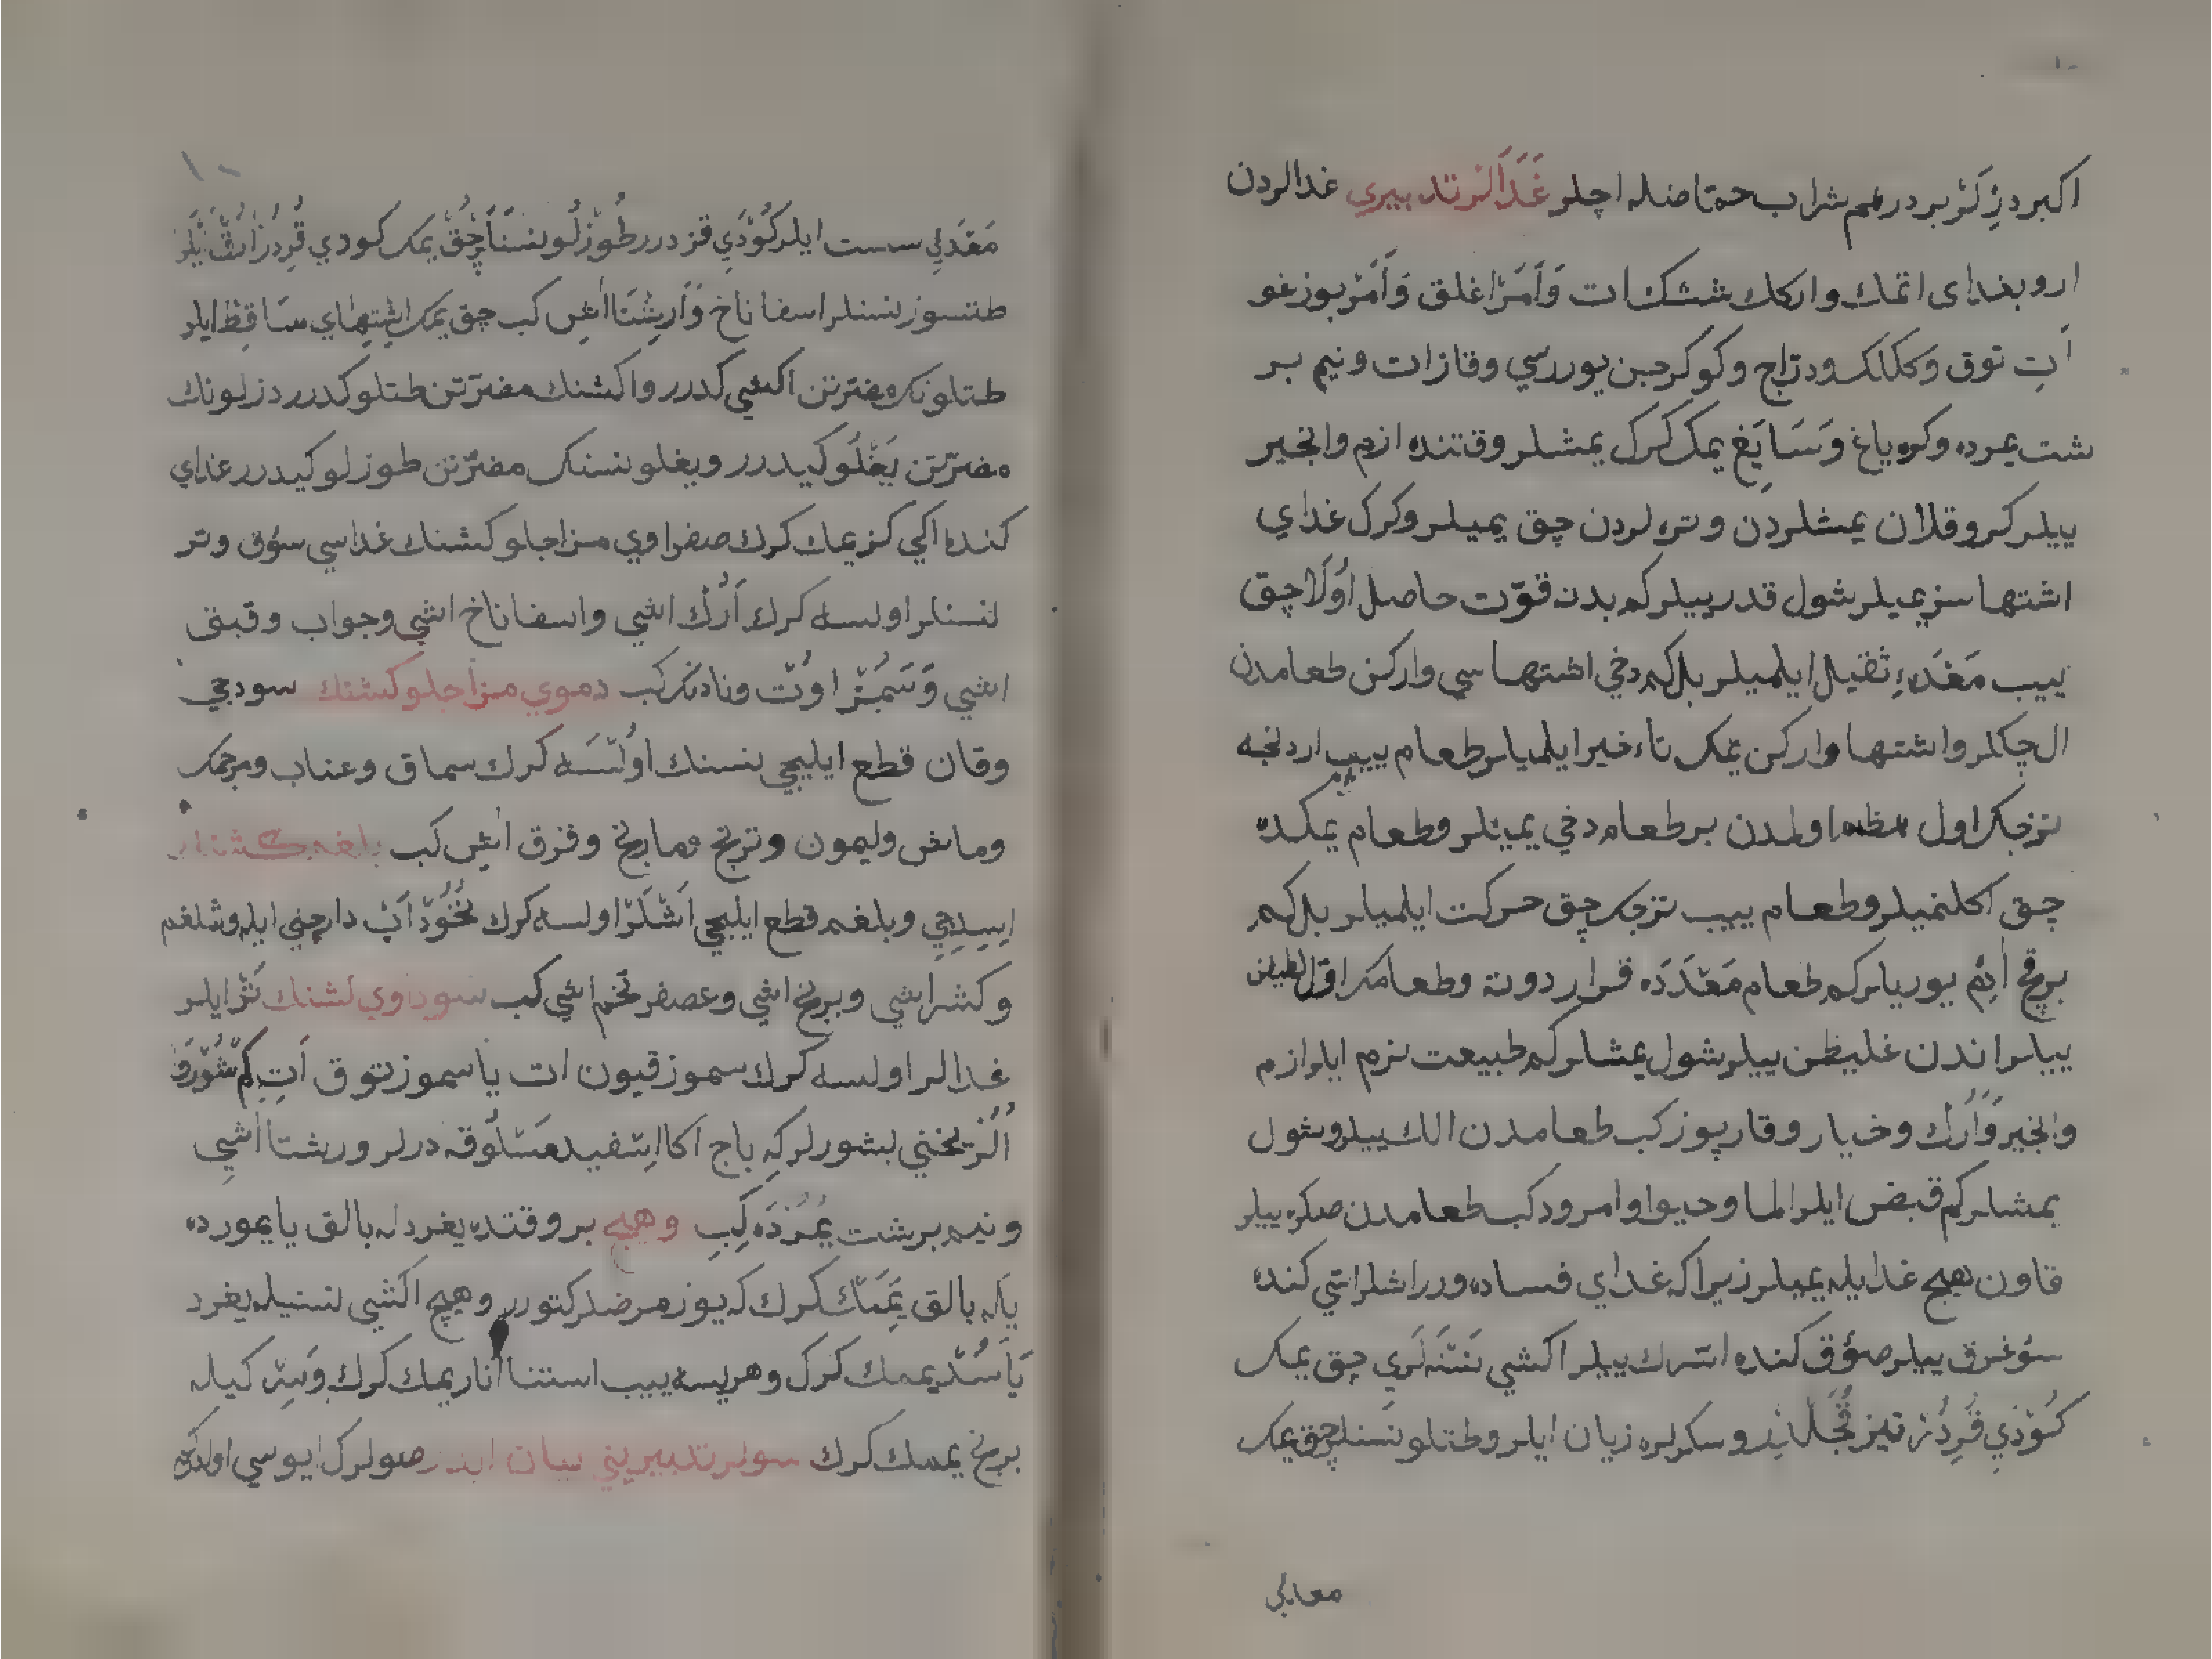 اكبر دزلر بردرهم شراب حمتاضله اچلر غَدَالَرْ تدبيري غدالردن
ارو بغداى اتمك واركك ششك ات وَاَمَرْ اغلق وَاَمَرْ بوزغو
اَتِ توق وككلك ودرّاج وكوكرجن يورسي وقاز ات ونيم بر
شت يمرده وكره ياغ وَسَايَغ يمك كرك يمشلر وقتنده ازم وانجير
ييلر كرو قلان يمشلردن وتره لردن چق يميلر وكرك غداي
اشتها سز يميلر شول قدر ييلر كم بدنه قوّت حاصل اولا چق
ييب مَعْدَءِ ثقيل ايلميلر بل كه دخي اشتهاسي واركن طعامدن
ال چكلر واشتها واركن يمك تاءخير ايلميلر طعام ييب اردنجه
تزجك اول هظم اولمدن بر طعام دخي يميلر وطعام يمكده
چق اكلنميلر وطعام ييب تزجك چق حركت ايلميلر بل كم
برقچ اَدِم يوريلر كم طعام مَعْدَدَه قرار دوته وطعامك اوّل لطيفن
ييلر اندن غليظن ييلر شول يمشلر كم طبيعت نرم ايلر ازم
وانجير وَاَرُك وخيار وقارپوز كب طعامدن الك ييلر وشول
يمشلر كم قبض ايلر الما وحيوا وامرود كب طعامدن صكره ييلر
قاون هيچ غدايله يميلر زيرا كه غداي فساده ورر اشلر اسّي كنده
سؤغق ييلر صؤق كنده اسّرك ييلر اكشي نَسْنَه لَرِي چق يمك
كَوْدَيِ قُرِدُرْ تيز قُجَلْدُر وسكرلره زيان ايلر وطتلو نسنلر چق يمك
معدلي
مَعْدَلِي سست ايلر كَوْدَيِ قزدرر طُوزْلُو نسنَلَرْ چُقْ يمك كودي قُرِدُرْ
طتسوز نسنلر اسفاناخ وَاَرِشْتَا اشِ كب چق يمك اشتهاي ساقط ايلر
طتلونك مضرّتن اكشي كدرر واكشنك مضرّتن طتلو كدرر دزلونك
مضرّتن يَغْلُو كيدرر ويغلو نسنك مضرّتن طوزلو كيدرر غداي
كنده اكي كز يمك كرك صفراوي مزاجلو كشنك غداسي سؤق وتر
نسنلر اولسه كرك اَرُك اشي واسفاناخ اشي وجواب وقبق
اشي وَسَمُزْ اوت وناردنك كب دموي مزاجلو كشنك سودجي
وقان قطع ايليجي نسنك اولسَه كرك سماق وعناب ومرجمك
وماش وليمون وترنج وفزق اشِ كب بلغم كشنك
اسِدِجِي وبلغم قطع ايليجي اَشْلَرْ اولسه كرك نُخُودْ آبْ دارچني ايله وشلغم
وكشر اشي وبرنج اشي وعصفر تخم اشي كب سوداوي كشنك تَرْ ايلر
غدالر اولسه كرك سموز قيون ات يا سموز توق اَتِ كم شُورْوَا
اَلَرْ نخني بشورلر كه باج اكا اِسْفيد مَسْلُوقه درلر ورشتا اشِي
ونيم برشت يُمُرْدَه كِبِ وهيچ بر وقتده يغردله بالق يا يمورده
يله بالق يَمَمَك كرك كه يوز مرضلر كتورر وهيچ اكشي نسنيله يغرد
يَا سُدْ يممك كرك وهريسه ييب استنا انار يمك كرك وَسِرْكيله
برنج يممك كرك سولر تدبيريني بيان ايدر صولرك ايوسي اولدركم